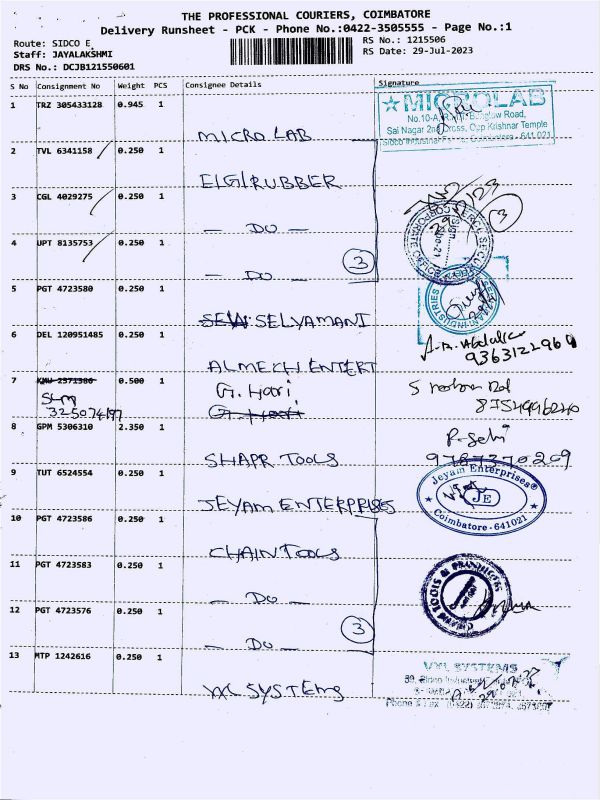 THE PROFESSIONAL COURIERS, COIMBATORE
Delivery Runsheet - PCK - Phone No.:0422-3505555 - Page No.:1
Route: SIDCO E
RS No.: 1215506
Staff: JAYALAKSHMI
RS Date: 29-Jul-2023
DRS No.: DCJB121550601
S No Consignment No Weight PCS Consignee Details Signature
1 TRZ 305433128 0.945 1
MICRO LAB
MICROLAB
Sai Nagar 2nd Cross, Opp Krishnar Temple
2 TVL 6341158 0.250 1
ELGI RUBBER
3 CGL 4029275 0.250 1
— DO —
3
4 UPT 8135753 0.250 1
— DO — 3
5 PGT 4723580 0.250 1
SELVAMANI
6 DEL 120951485 0.250 1
ALMECH ENTERT
9363122960
7 KMU 2371380 0.500 1
SLM
325074197
G. Hari
8754996240
8 GPM 5306310 2.350 1
SHAPR TOOLS
9787370209
9 TUT 6524554 0.250 1
JEYAM ENTERPRISES
Jeyam Enterprises
JE
Coimbatore - 641021
10 PGT 4723586 0.250 1
CHAIN TOOLS
11 PGT 4723583 0.250 1
— DO —
12 PGT 4723576 0.250 1
— DO — 3
13 MTP 1242616 0.250 1
VXL SYSTEMS
VXL SYSTEMS